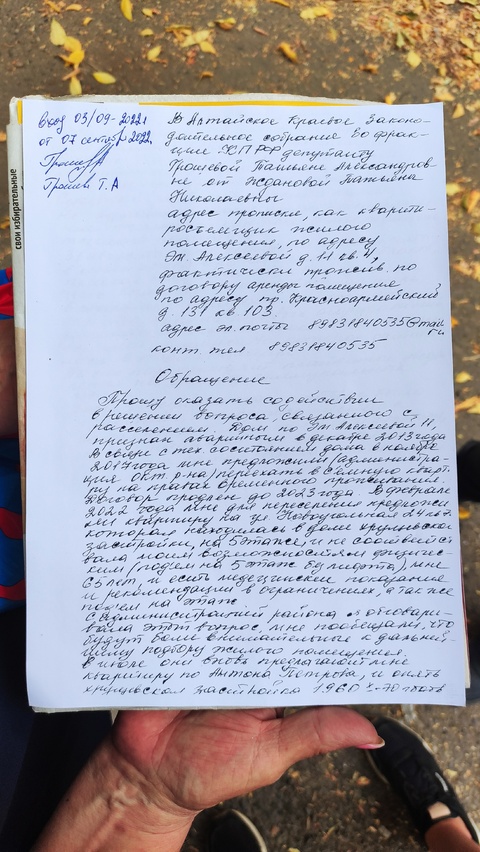 свои избирательные
Вход 03/09-2022г
от 07 сентября 2022г.
Грошев Т.А
В Алтайское Краевое Законо-
дательное собрание во фрак-
цию КПРФ депутату
Грошевой Татьяне Александров-
не от Ждановой Татьяна
Николаевны
адрес прописки, как кварти-
росъемщик жилого
помещения, по адресу
Эм. Алексеевой д. 11 кв. 4,
фактически прожив. по
договору аренды помещения
по адресу пр. Красноармейский,
д. 131 кв. 103.
адрес эл. почты 89831840535@mail
конт. тел 89831840535
Обращение
Прошу оказать содействии
в решении вопроса, связанного с
расселением. Дом по Эм. Алексеевой 11,
признан аварийным в декабре 2013 года
В связи с тех. состоянием дома в ноябре
2017 года мне предложили (администра-
ция окт. р-на) переехать в съемную кварти-
ру на правах временного проживания.
Договор продлен до 2023 года. В феврале
2022 года мне для переселения предложи-
ли квартиру на ул.
которая находилась в доме хрущевской
застройки, на 5 этаже, и не соответст
вала моим возможностям физичес-
ким (подъем на 5 этаж без лифта), мне
65 лет, и есть медецинские показания
и рекомендации в ограничениях, а так же
подъем на этаж.
С администрацией района я обговари-
вала этот вопрос, мне пообещали, что
будут более внимательные к дальней-
шему подбору жилого помещения.
В июле они вновь предлогают мне
квартиру по Антона Петрова, и опять
хрущевская застройка 1960